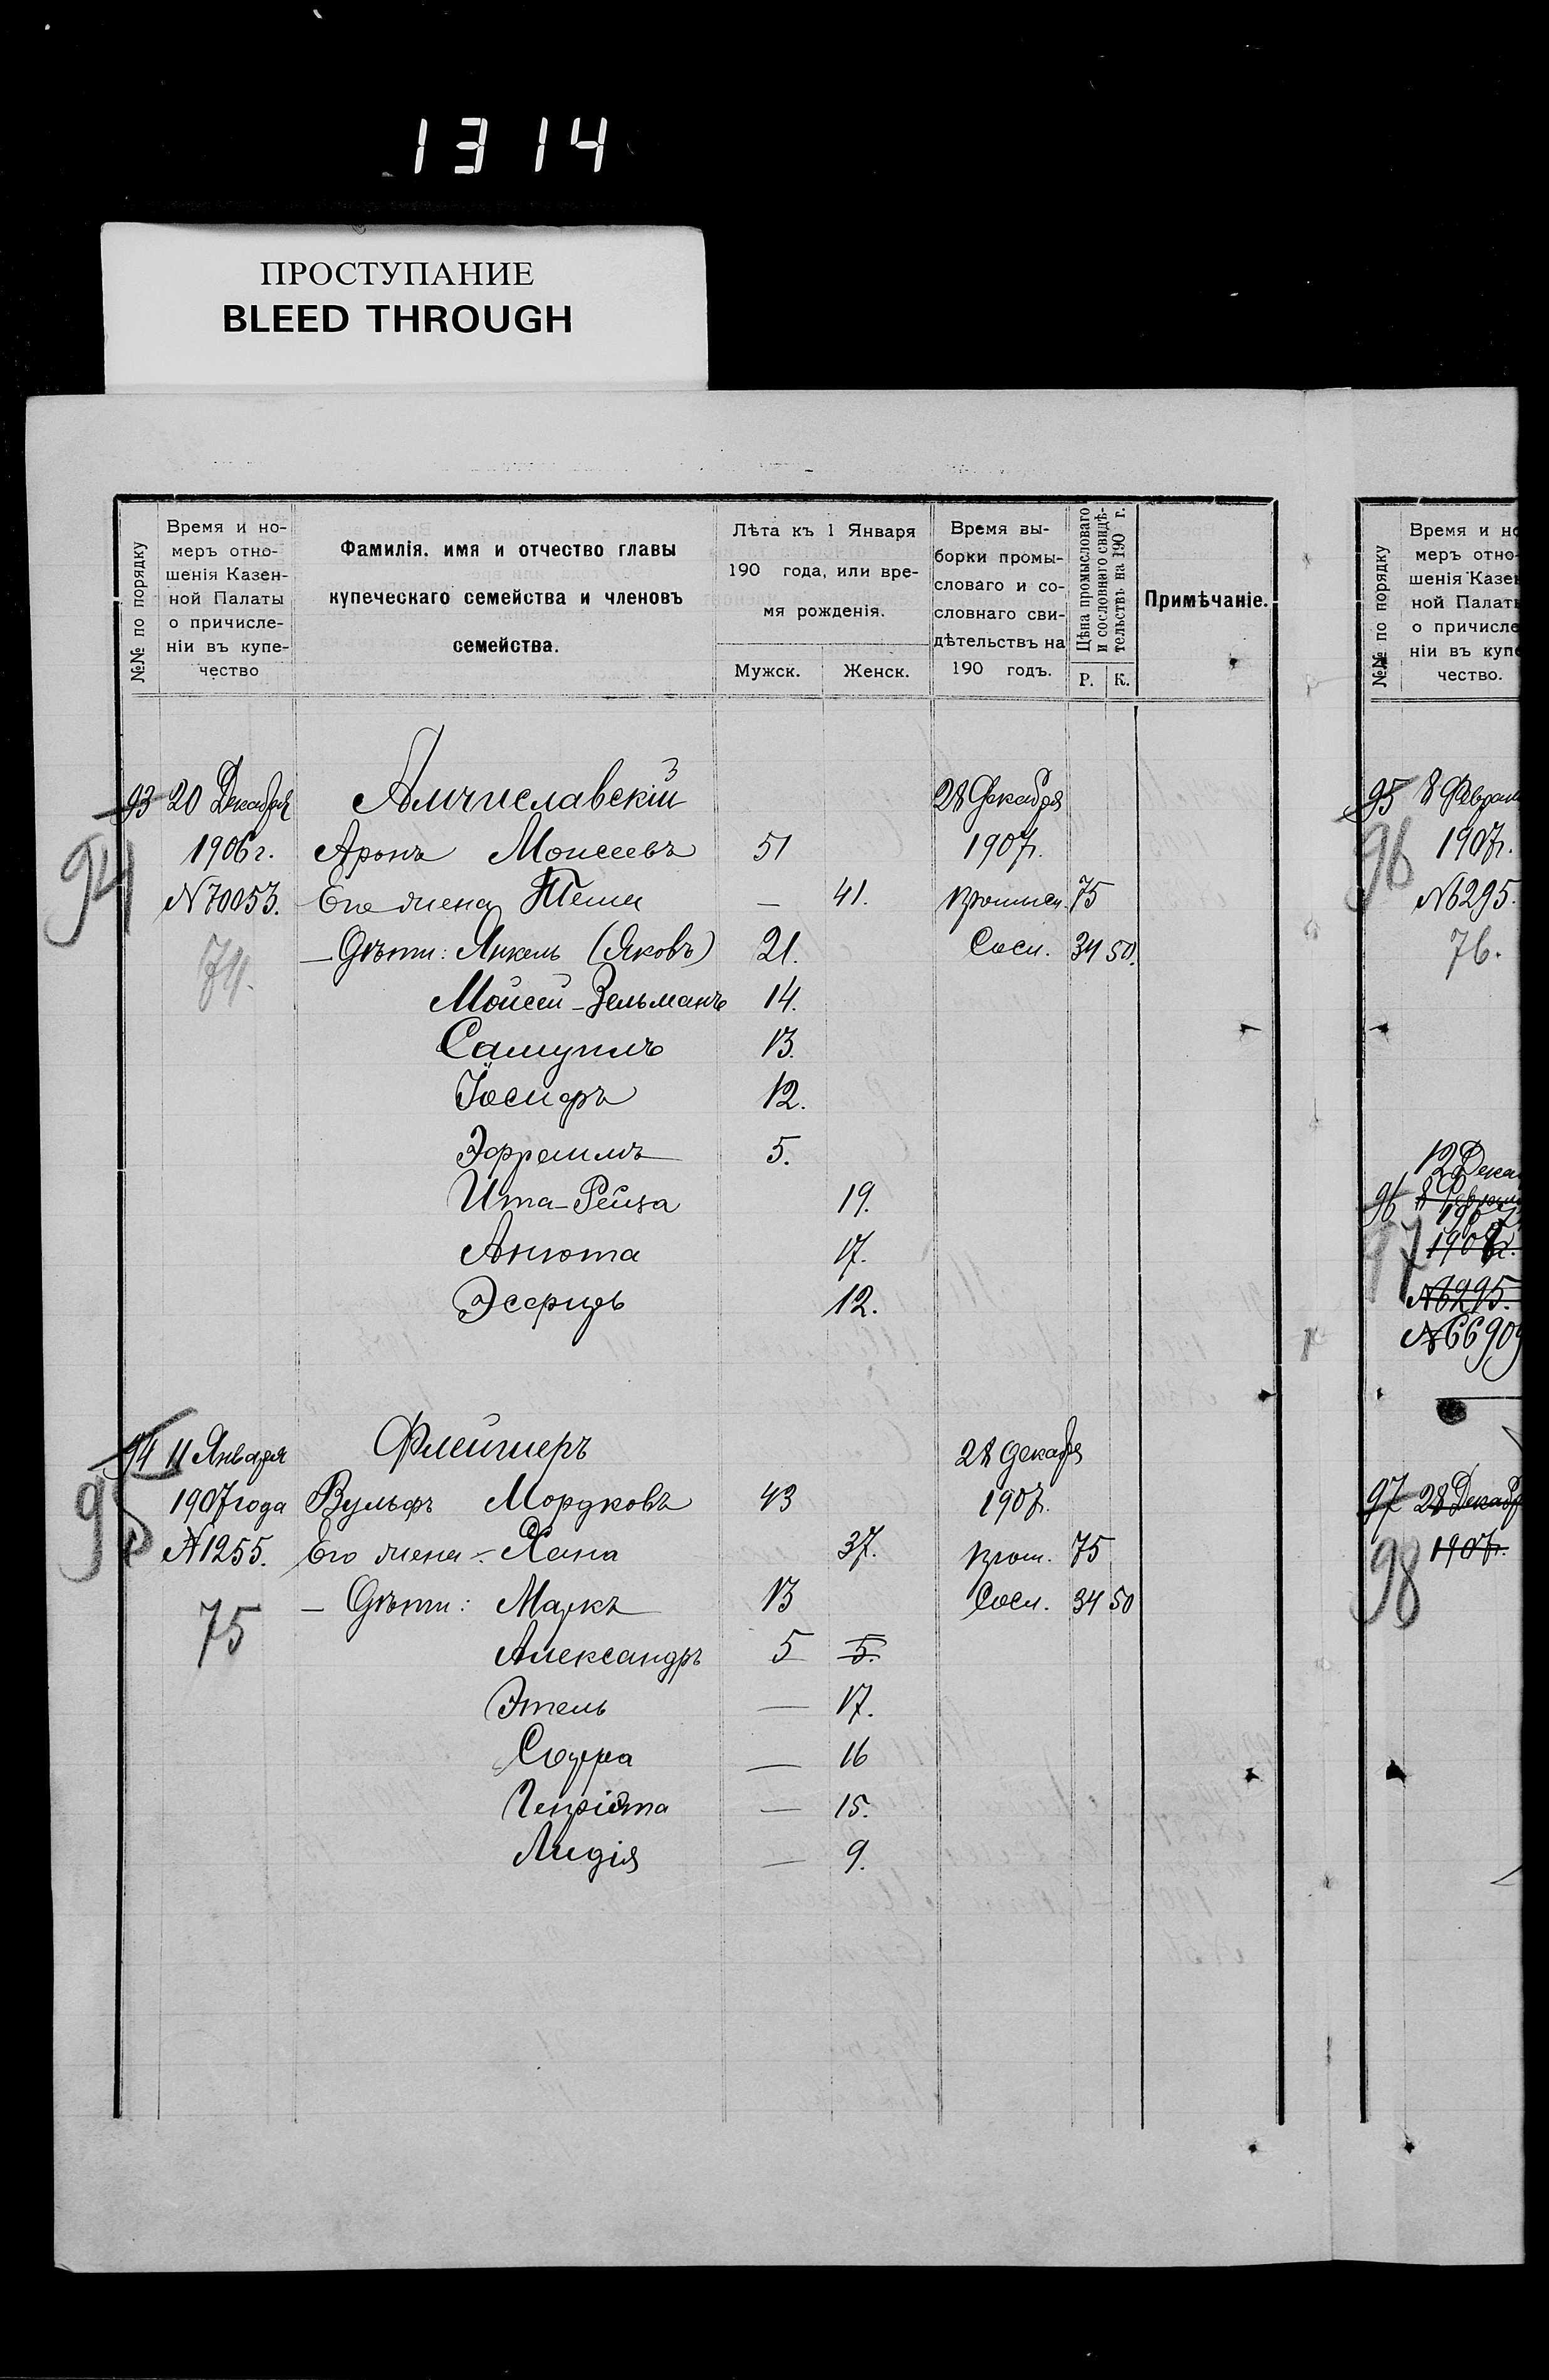 1314
ПРОСТУПАНИЕ
BLEED THROUGH
№№ по порядку
Время и но-
меръ отно-
шенія Казен-
ной Палаты
о причисле-
ніи въ купе-
чество
Фамилія. имя и отчество главы
купеческаго семейства и членовъ
семейства.
Лѣта къ 1 Января
190 года, или вре-
мя рожденія.
Мужск. Женск.
Время вы-
борки промы-
словаго и со-
словнаго сви-
дѣтельствъ на
190 годъ.
Цѣна промысловаго
и сословнаго свидѣ-
тельствъ на 190 г.
Р. К.
Примѣчаніе.
93 20 Декабря Амчиславскій 28 Декабря
94 1906 г. Аронъ Моисеевъ 51 1907г.
N70053. Его жена — 41. Промысл. 75
74. — Дѣти: Янкель (Яковъ) 21. Сосл. 34 50.
Мойсей-Зельманъ 14.
Самуилъ 13.
Іосифъ 12.
Эфроимъ 5.
Ита-Рейза 19.
Анюта 17.
Эсфирь 12.
94 11 Января Флейшеръ 28 декабря
95 1907 года Вульфъ Мордковъ 43 1907г.
N1255. Его жена - Хана 37. Пром. 75
75 — Дѣти: Маркъ 13 Сосл. 34 50
Александръ 5 5.
Этель — 17.
Софья — 16
Генріэта — 15.
Лидія — 9.
№№ по порядку
Время и но
меръ отно-
шенія Казен
ной Палаты
о причисле
ніи въ купе
чество.
95 8 Феврал
96 1907г.
N6295.
76.
12 Дека
96 8 Феврал
1907
97 1907г.
N6295.
N66909
97 28 Декабр
98 1907г.